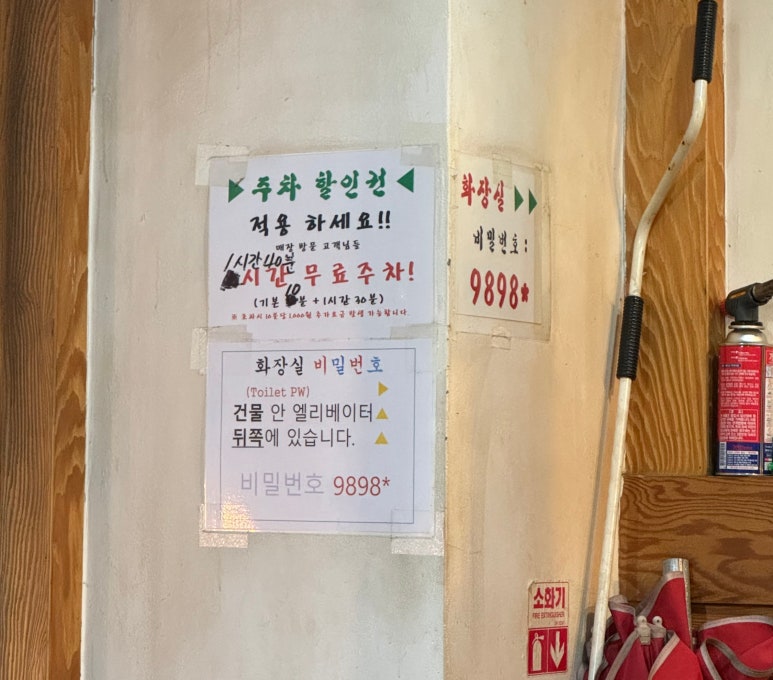 주차 할인권
적용 하세요!!
매장 방문 고객님들
1시간40분
시간 무료주차!
(기본 10분 + 1시간 30분)
※ 초과시 10분당 1,000원 추가요금 발생 가능합니다.
화장실 비밀번호
(Toilet PW)
건물 안 엘리베이터
뒤쪽에 있습니다.
비밀번호 9898*
화장실
비밀번호 :
9898*
소화기
FIRE EXTINGUISHER